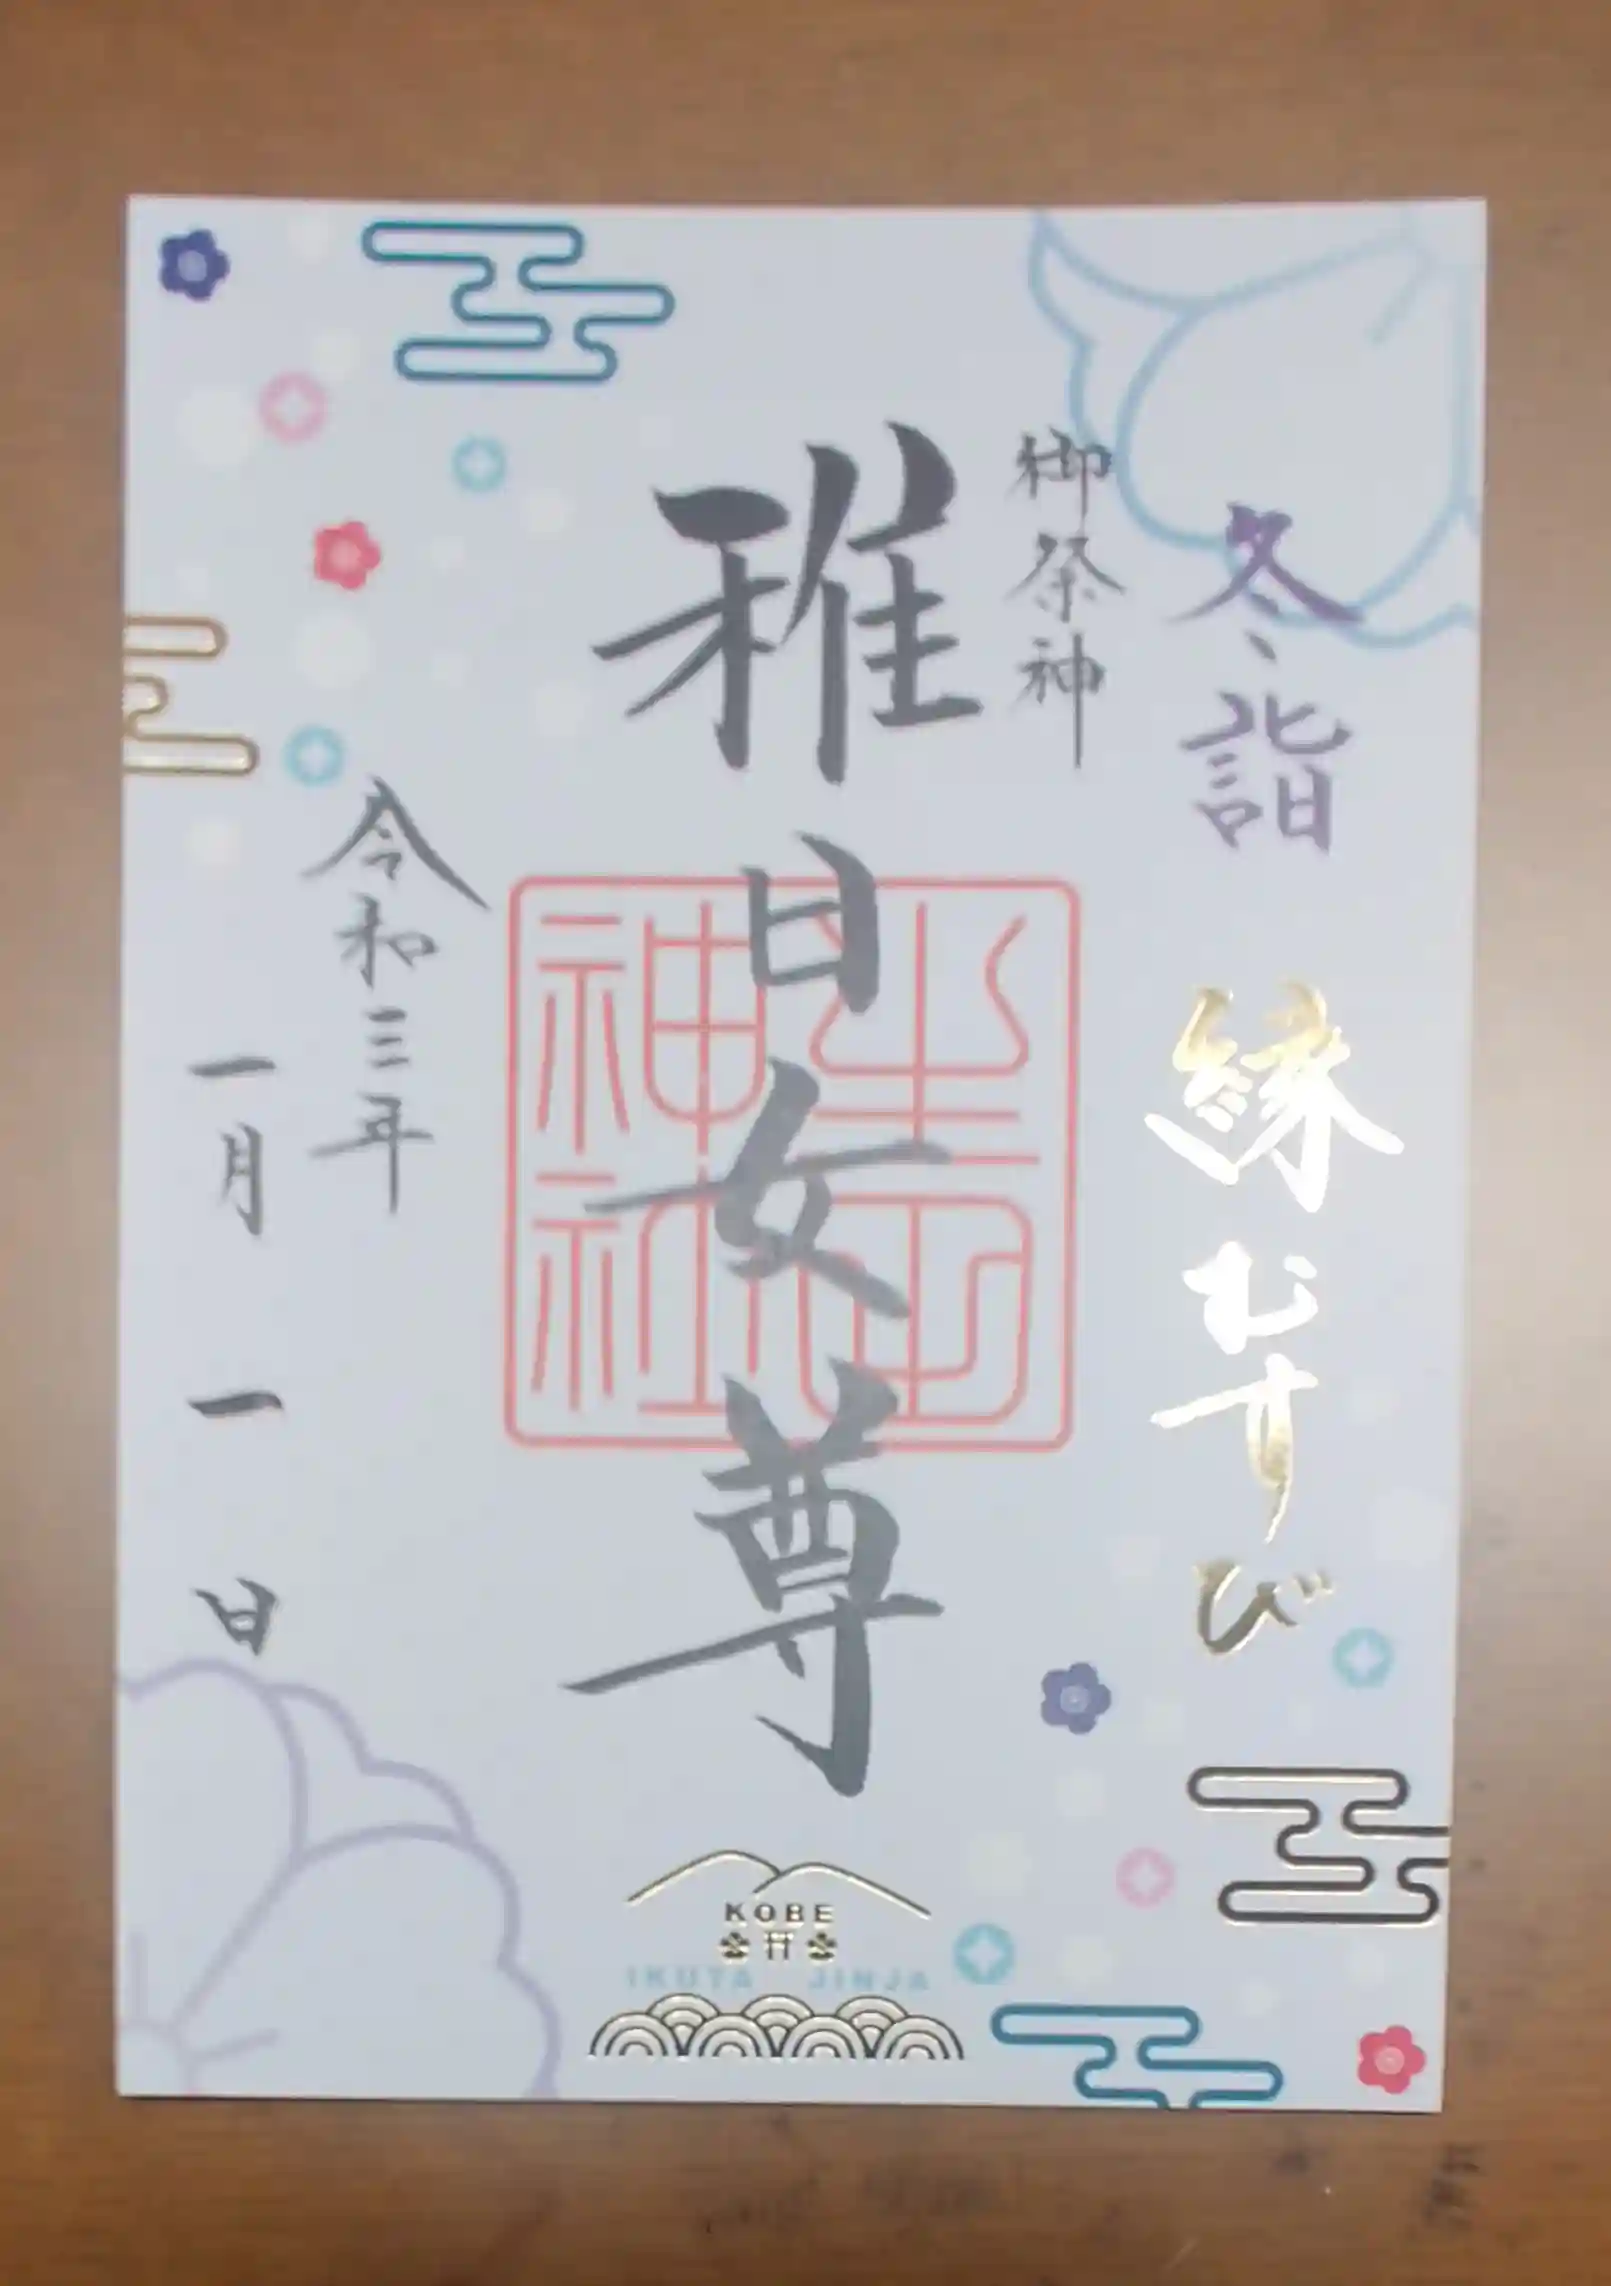 冬詣
縁むすび
御祭神
稚日女尊
生田
神社
令和三年
一月一日
KOBE
IKUTA JINJA